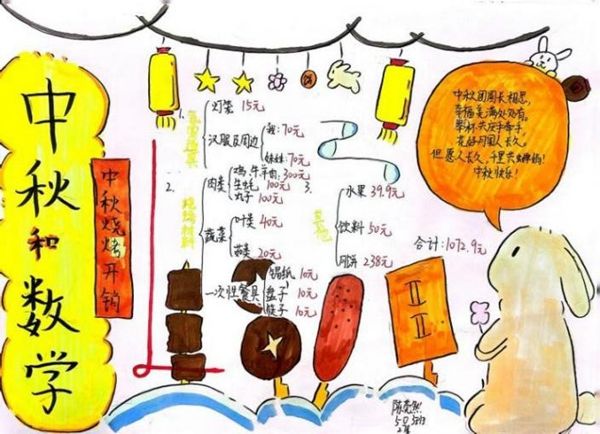 中秋和数学
中秋烧烤开销
1.
灯笼 15元
汉服及周边
我:70元
妹妹:70元
2.
烧烤材料
肉类
鸡、牛、羊肉:300元
生蚝 100元
丸子 100元
蔬菜
叶类 40元
菇类 20元
一次性餐具
锡纸 10元
盘子 10元
筷子 10元
3.
其他
水果 39.9元
饮料 50元
月饼 238元
合计:1072.9元
中秋团圆长相思,
幸福美满处处有,
举杯共庆手牵手,
花好月圆人长久,
但愿人长久,千里共婵娟!
中秋快乐!